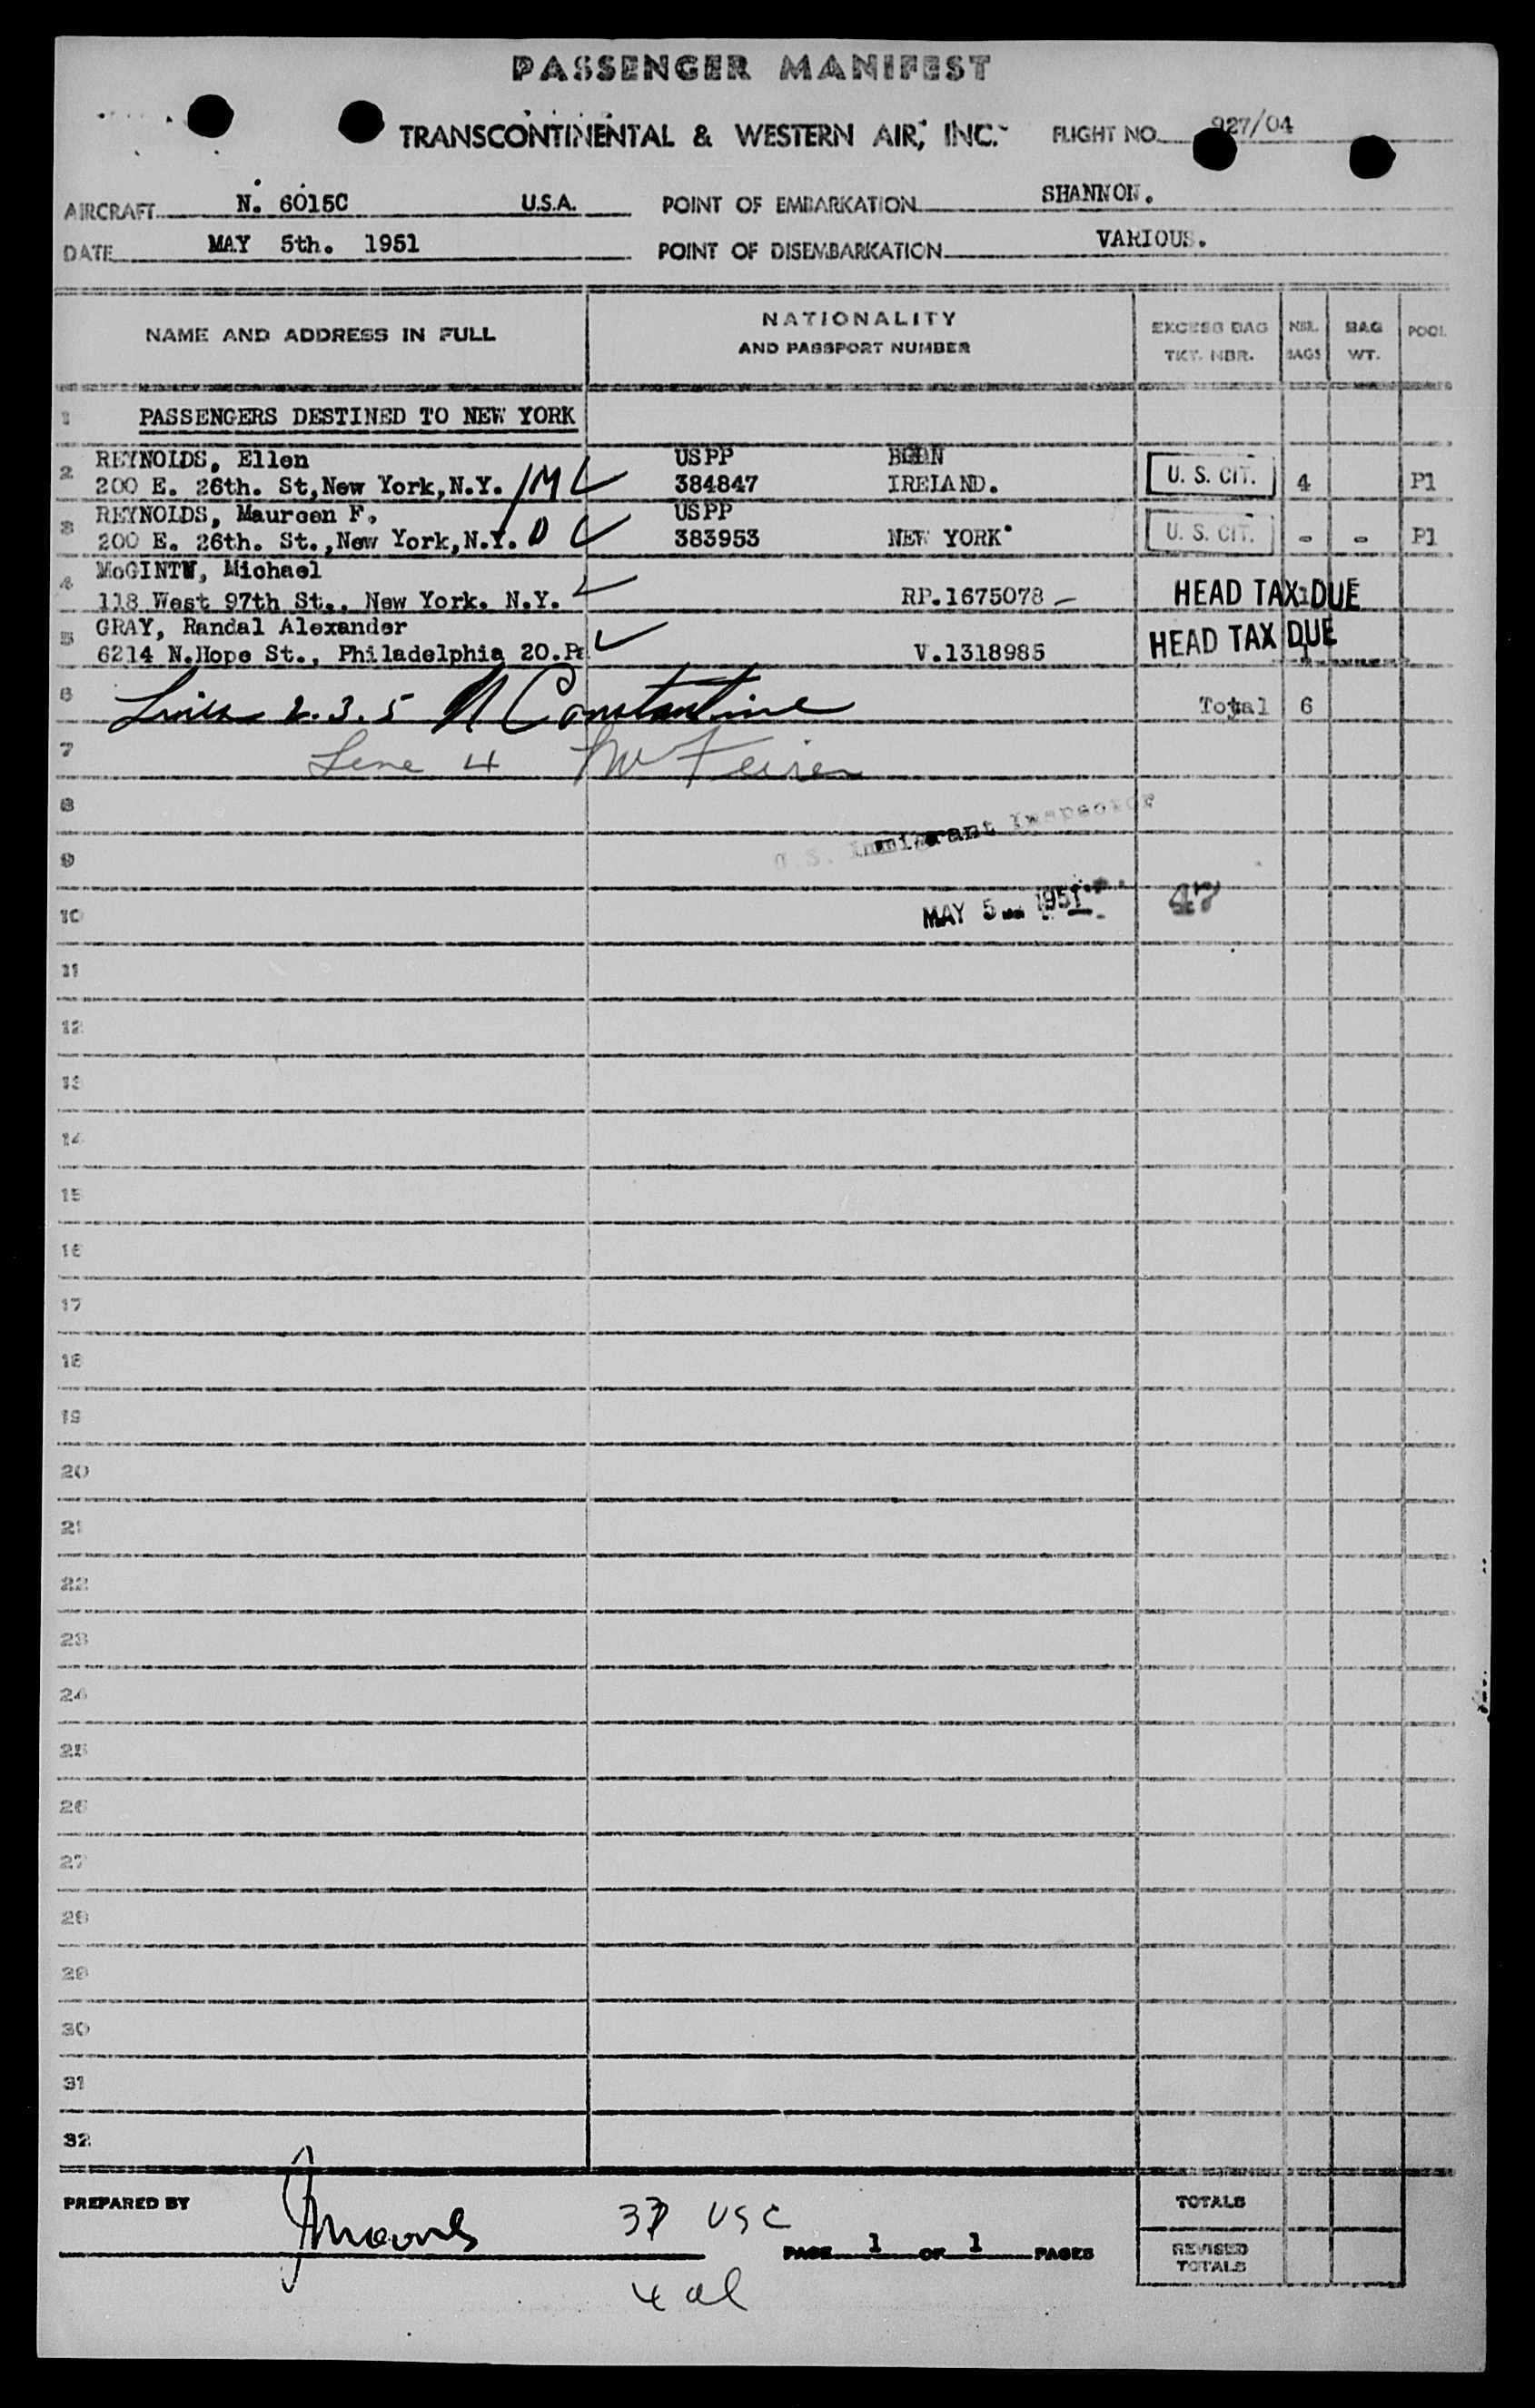 PASSENGER MANIFEST
TRANSCONTINENTAL & WESTERN AIR, INC. FLIGHT NO. 927/04
AIRCRAFT N. 6015C U.S.A. POINT OF EMBARKATION SHANNON.
DATE MAY 5th. 1951 POINT OF DISEMBARKATION VARIOUS.
NAME AND ADDRESS IN FULL NATIONALITY AND PASSPORT NUMBER EXCESS BAG TKT. NBR. NBR. BAGS BAG WT. POOL
1 PASSENGERS DESTINED TO NEW YORK
2 REYNOLDS, Ellen USPP
200 E. 26th. St,New York,N.Y. M 384847 IRELAND. U. S. CIT. 4 P1
3 REYNOLDS, Maureen F. USPP
200 E. 26th. St.,New York,N.Y. D 383953 NEW YORK U. S. CIT. - - P1
4 McGINTY, Michael
118 West 97th St., New York. N.Y. RP.1675078 HEAD TAX DUE 1
5 GRAY, Randal Alexander
6214 N.Hope St., Philadelphia 20.Pa V.1318985 HEAD TAX DUE 1
6 Lines 2.3.5 N Constantine Total 6
7 Line 4
8
U.S. Immigrant Inspector
9
10 MAY 5 1951 47
11
12
13
14
15
16
17
18
19
20
21
22
23
24
25
26
27
28
29
30
31
32
PREPARED BY 37 USC PAGE 1 OF 1 PAGES TOTALS
REVISED TOTALS
4 al